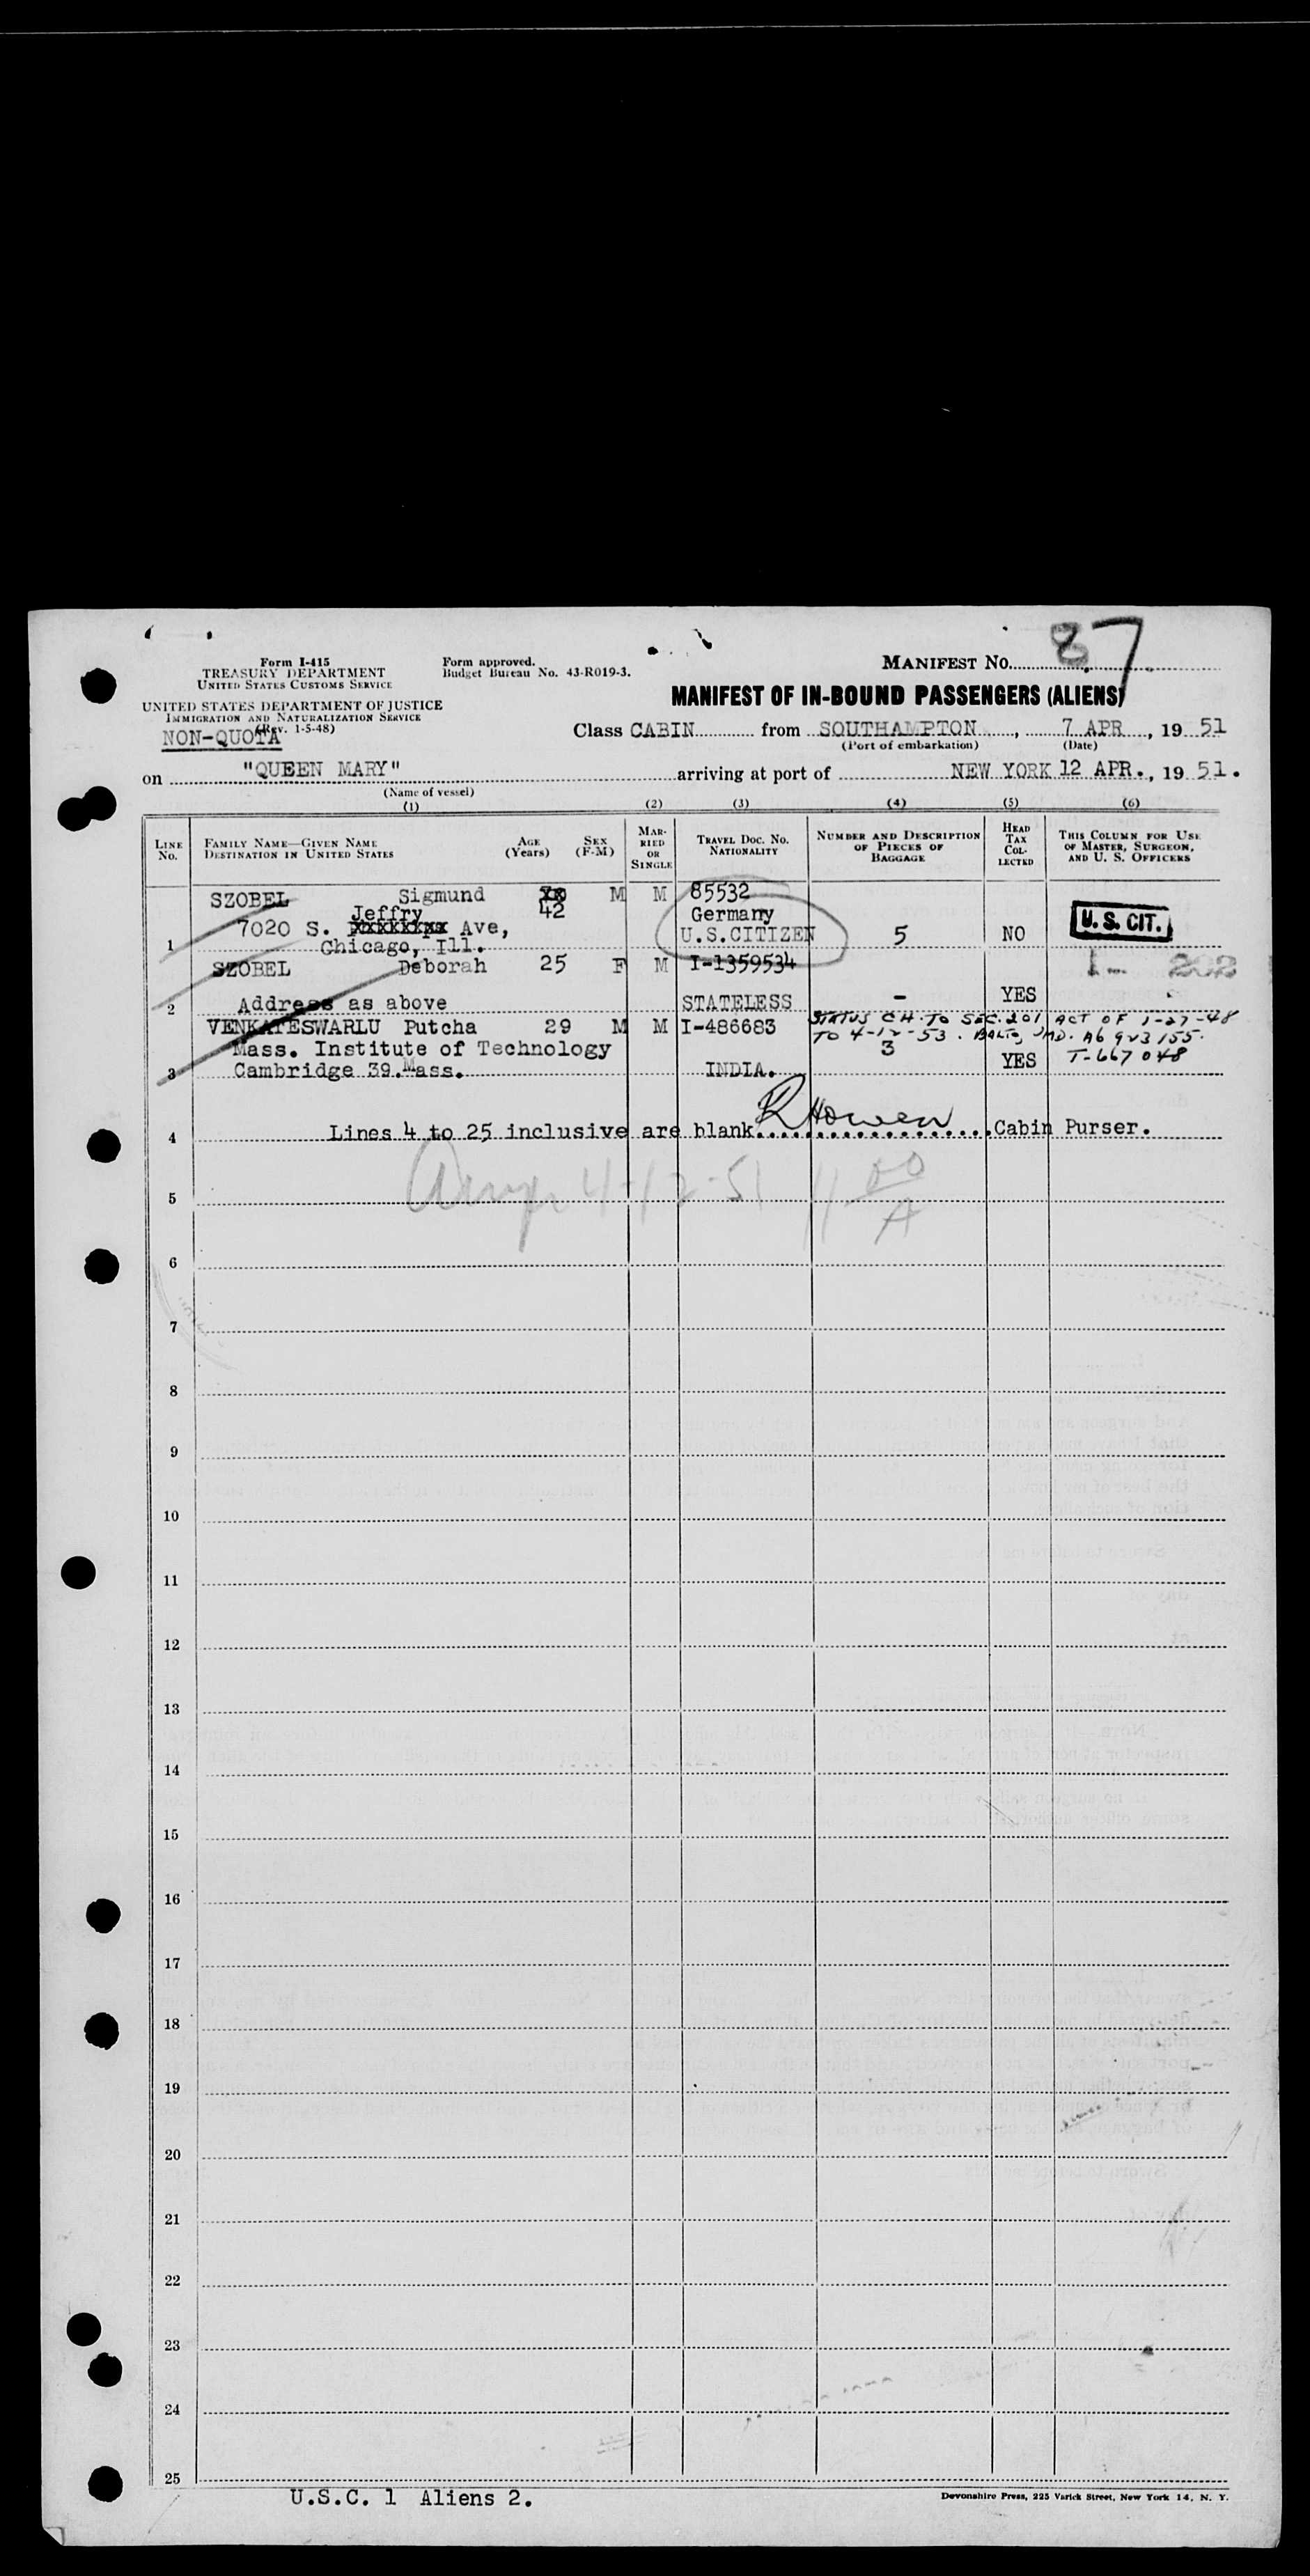 87
Form I-415
TREASURY DEPARTMENT
UNITED STATES CUSTOMS SERVICE
Form approved.
Budget Bureau No. 43-R019-3.
MANIFEST No.
MANIFEST OF IN-BOUND PASSENGERS (ALIENS)
UNITED STATES DEPARTMENT OF JUSTICE
IMMIGRATION AND NATURALIZATION SERVICE
(Rev. 1-5-48)
NON-QUOTA
Class CABIN from SOUTHAMPTON, 7 APR, 19 51
(Port of embarkation) (Date)
on "QUEEN MARY" arriving at port of NEW YORK 12 APR., 19 51.
(Name of vessel)
(1) (2) (3) (4) (5) (6)
LINE No.
FAMILY NAME—GIVEN NAME
DESTINATION IN UNITED STATES
AGE (Years)
SEX (F-M)
MARRIED OR SINGLE
TRAVEL DOC. No. NATIONALITY
NUMBER AND DESCRIPTION OF PIECES OF BAGGAGE
HEAD TAX COLLECTED
THIS COLUMN FOR USE OF MASTER, SURGEON, AND U. S. OFFICERS
SZOBEL Sigmund 42 M M 85532
Jeffry Germany
7020 S. Ave, U.S.CITIZEN 5 NO U. S. CIT.
1 Chicago, Ill.
SZOBEL Deborah 25 F M I-1359534
2 Address as above STATELESS - YES
VENKATESWARLU Putcha 29 M M I-486683 STATUS CH. TO SEC. 201 ACT OF 1-27-48
TO 4-12-53. BALTO, MD. A6 923 155.
Mass. Institute of Technology 3
3 Cambridge 39.Mass. INDIA. YES T-667048
4 Lines 4 to 25 inclusive are blank. Cabin Purser.
4-12-51
5
6
7
8
9
10
11
12
13
14
15
16
17
18
19
20
21
22
23
24
25
U.S.C. 1 Aliens 2.
Devonshire Press, 225 Varick Street, New York 14, N. Y.